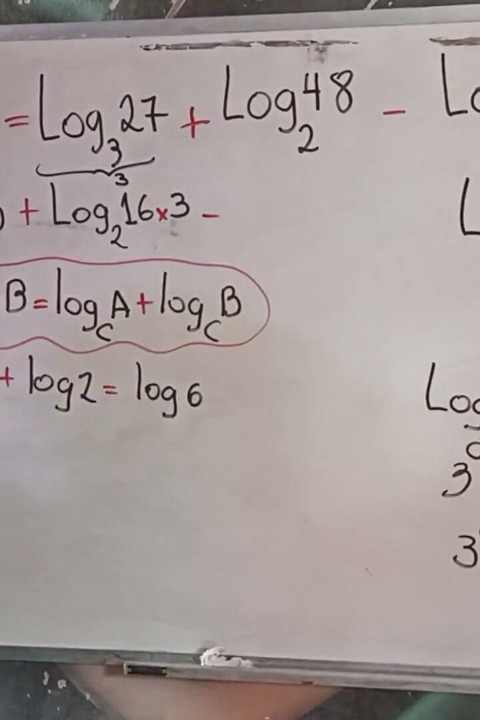 = Log₃27 + Log₂48 - Lo
3
+ Log₂16x3 -
L
B = log_C A + log_C B
+ log2 = log6
Log
3
3